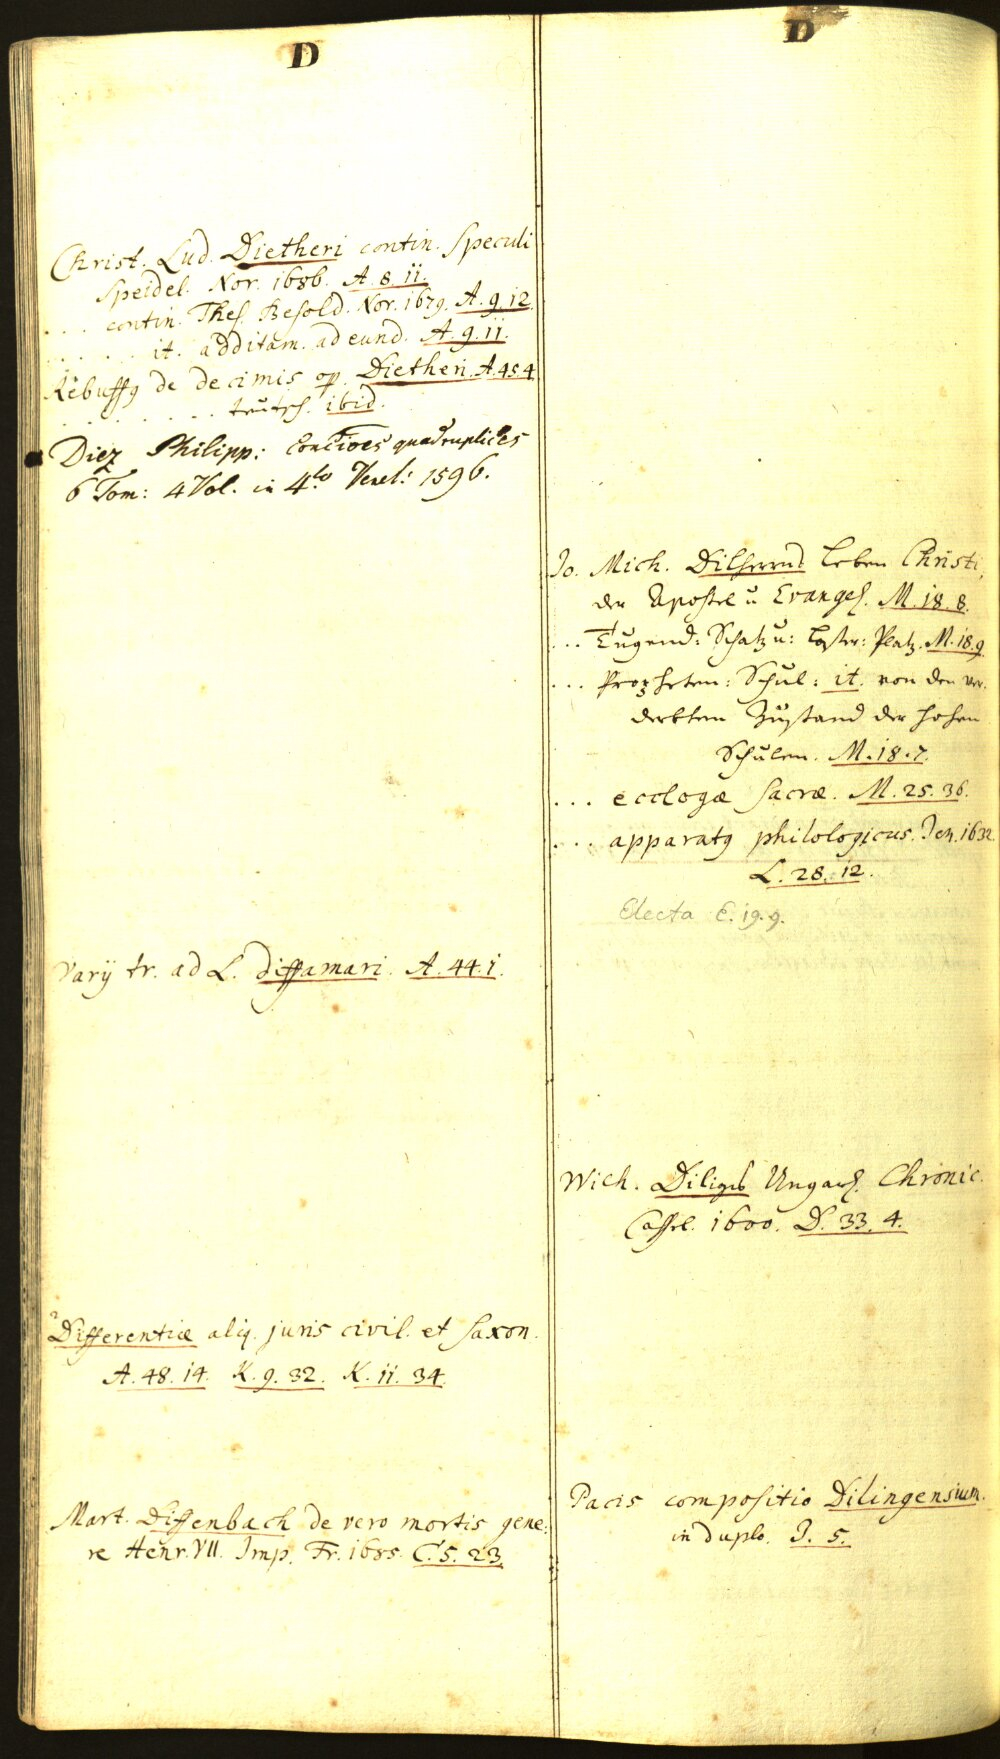 D
Christ. Lud. Dietheri contin. Speculi
Speidel. Nor. 1686. A. 8. 11.
. . . contin. Thes. Besold. Nor. 1679. A. 9. 12.
. . . . . it. additam. ad eund. A. 9. 11.
Rebuffg de decimis op. Dietheri. A. 45 4
. . . . . . . teutsch. ibid.
Diez Philipp: Concioes quadruplices
6 Tom: 4 Vol. in 4to Venet: 1596.
Varij tr. ad L. diffamari. A. 44. 1.
Differentiæ aliq. juris civil. et Saxon.
A. 48. 14. K. 9. 32. K. 11. 34.
Mart. Diffenbach de vero mortis gene:
re Henr. VII. Imp. Fr. 1685. C. 5. 23.
D
Jo. Mich. Dilherrns Leben Christi,
der Apostel u Evangel. M. 18. 8.
... Tugend: Schatz u: Laster: Platz. M. 18. 9.
... Propheten: Schul: it. von den ver
derbten Zustand der hohen
Schulen. M. 18. 7.
... eclogæ sacræ. M. 25. 36.
... apparatg philologicus. Jen. 1632.
L. 28. 12.
Electa E. 19. 9.
Wich. Dilichs Ungarl. Chronic.
Cassel. 1600. D. 33. 4.
Pacis compositio Dilingensium.
in duplo. J. 5.